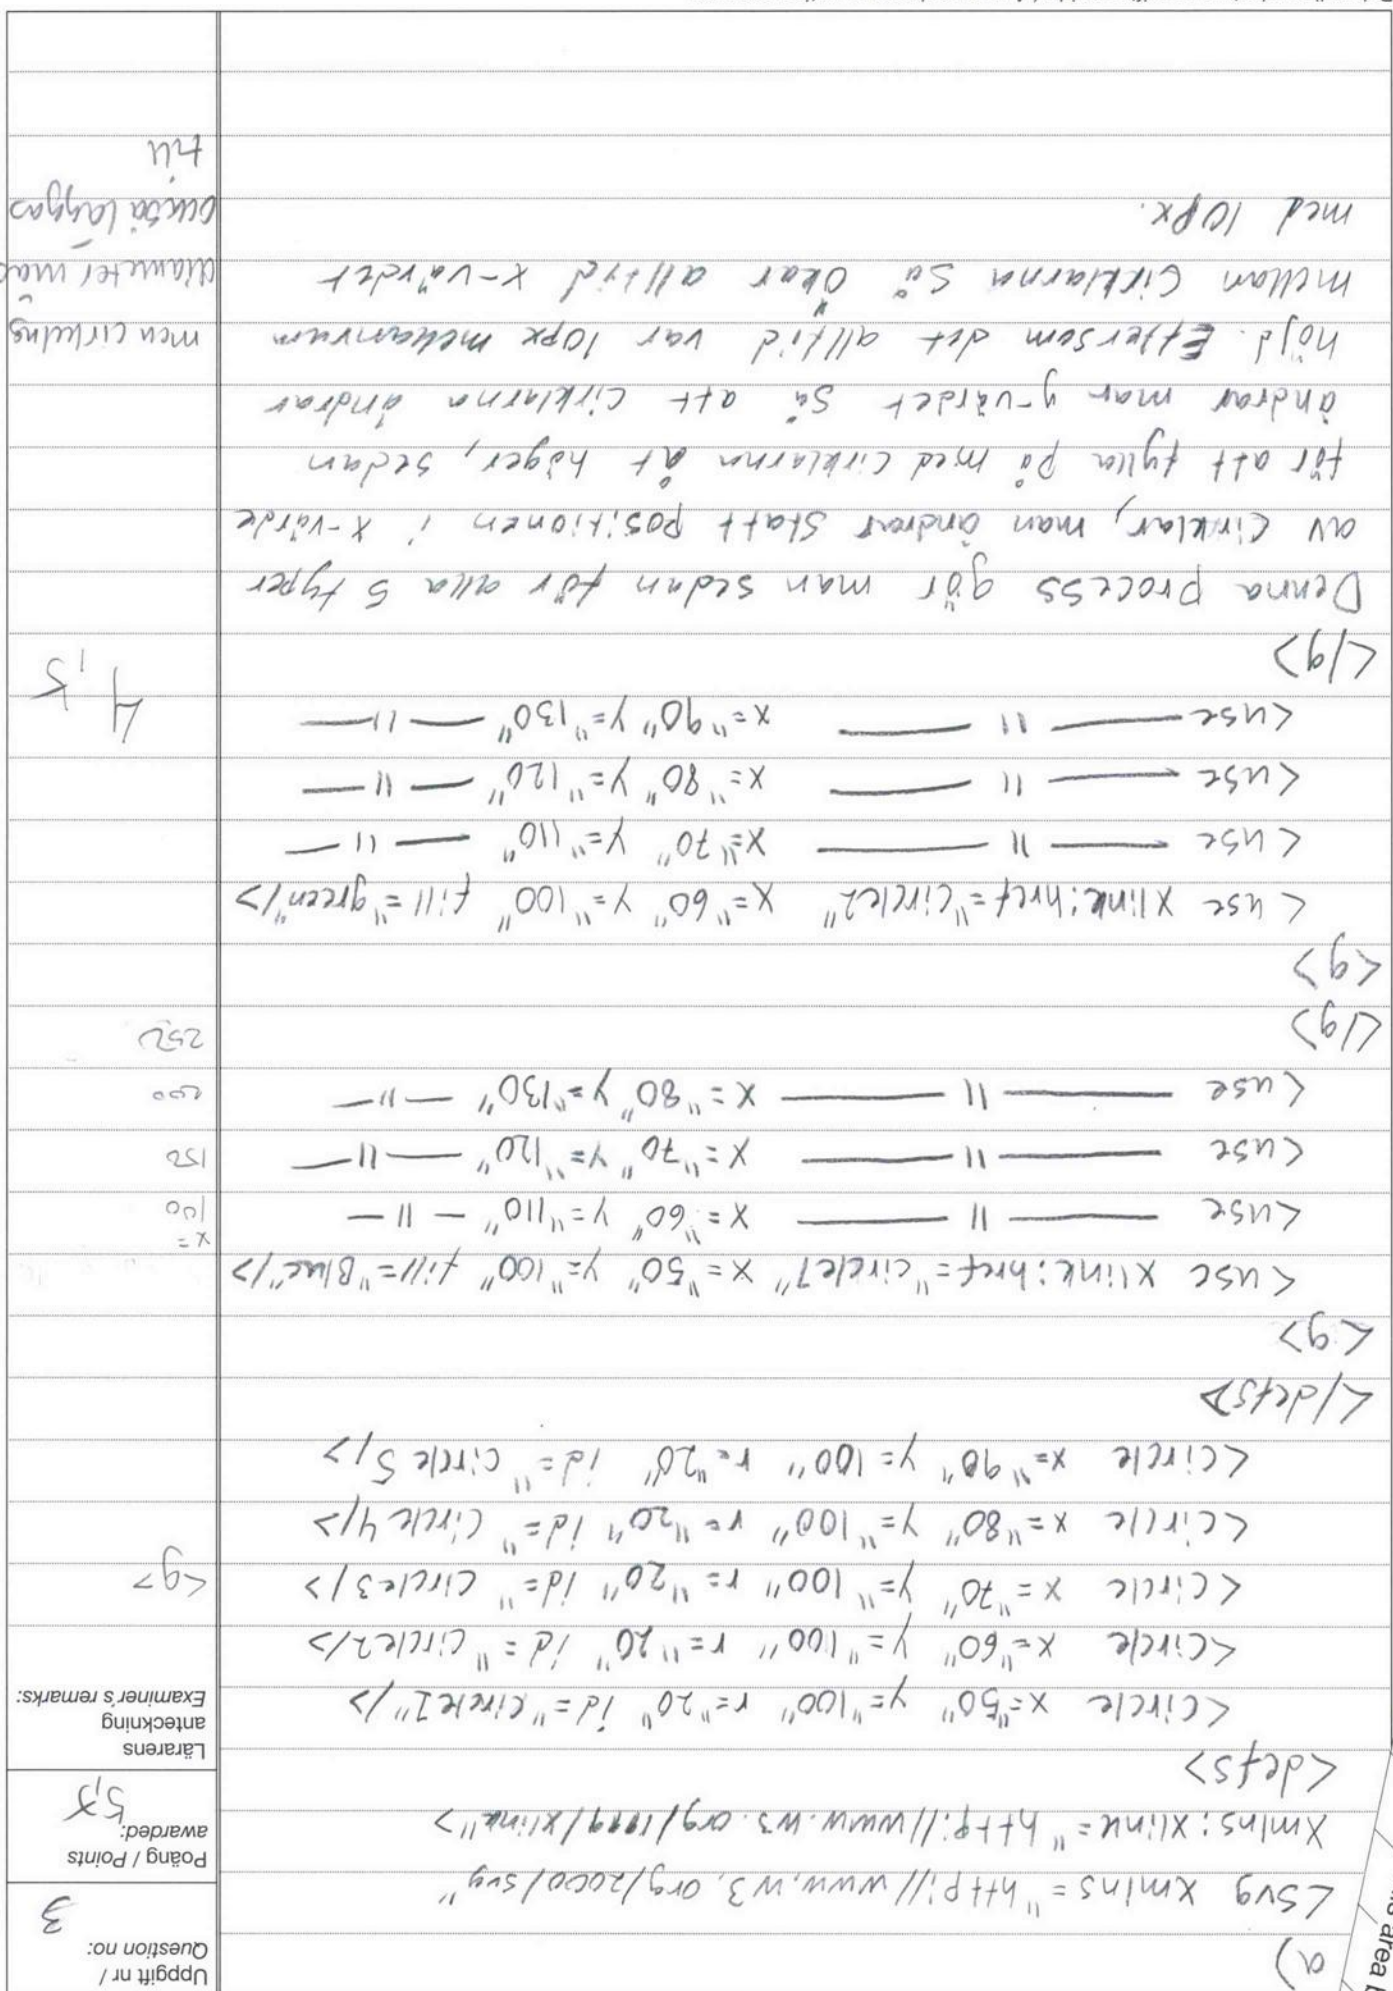 Uppgift nr /
Question no:
3
Poäng / Points
awarded:
5,5
Lärarens
anteckning
Examiner's remarks:
a)
<svg xmlns="http://www.w3.org/2000/svg"
xmlns:xlink="http://www.w3.org/1999/xlink">
<defs>
<circle x="50" y="100" r="20" id="circle1"/>
<circle x="60" y="100" r="20" id="circle2/>
<circle x="70" y="100" r="20" id="circle3/>
<g>
<circle x="80" y="100" r="20" id="circle4/>
<circle x="90" y=100" r="20" id="circle5/>
</defs>
<g>
<use xlink:href="circle1" x="50" y="100" fill="Blue"/>
<use — 11 — x="60" y="110" — 11 —
x=
100
<use — 11 — x="70" y="120" — 11 —
150
<use — 11 — x="80" y="130" — 11 —
200
</g>
250
<g>
<use xlink:href="circle2" x="60" y="100" fill="green"/>
<use — 11 — x="70" y="110" — 11 —
<use — 11 — x="80" y="120" — 11 —
<use — 11 — x="90" y="130" — 11 —
</g>
4,5
Denna process gör man sedan för alla 5 typer
av cirklar, man ändrar statt positionen i x-värde
för att fylla på med cirklarna åt höger, sedan
ändrar man y-värdet så att cirklarna ändrar
höjd. Eftersom det alltid var 10px mellanrum
mellan cirklarna så ökar alltid x-värdet
med 10px.
men cirkelns
diameter
också läggas
till